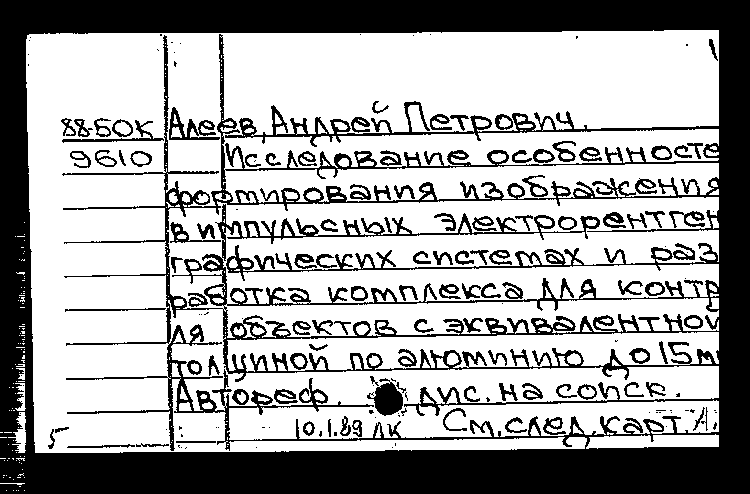 88-50К Алеев, Андрей Петрович.
9610 Исследование особенносте
формирования изображения
в импульсных электрорентген
графических системах и раз
работка комплекса для контр
ля объектов с эквивалентной
толщиной по алюминию до 15 м
Автореф. дис. на соиск.
10.1.89 ЛК См. след. карт. А.
5